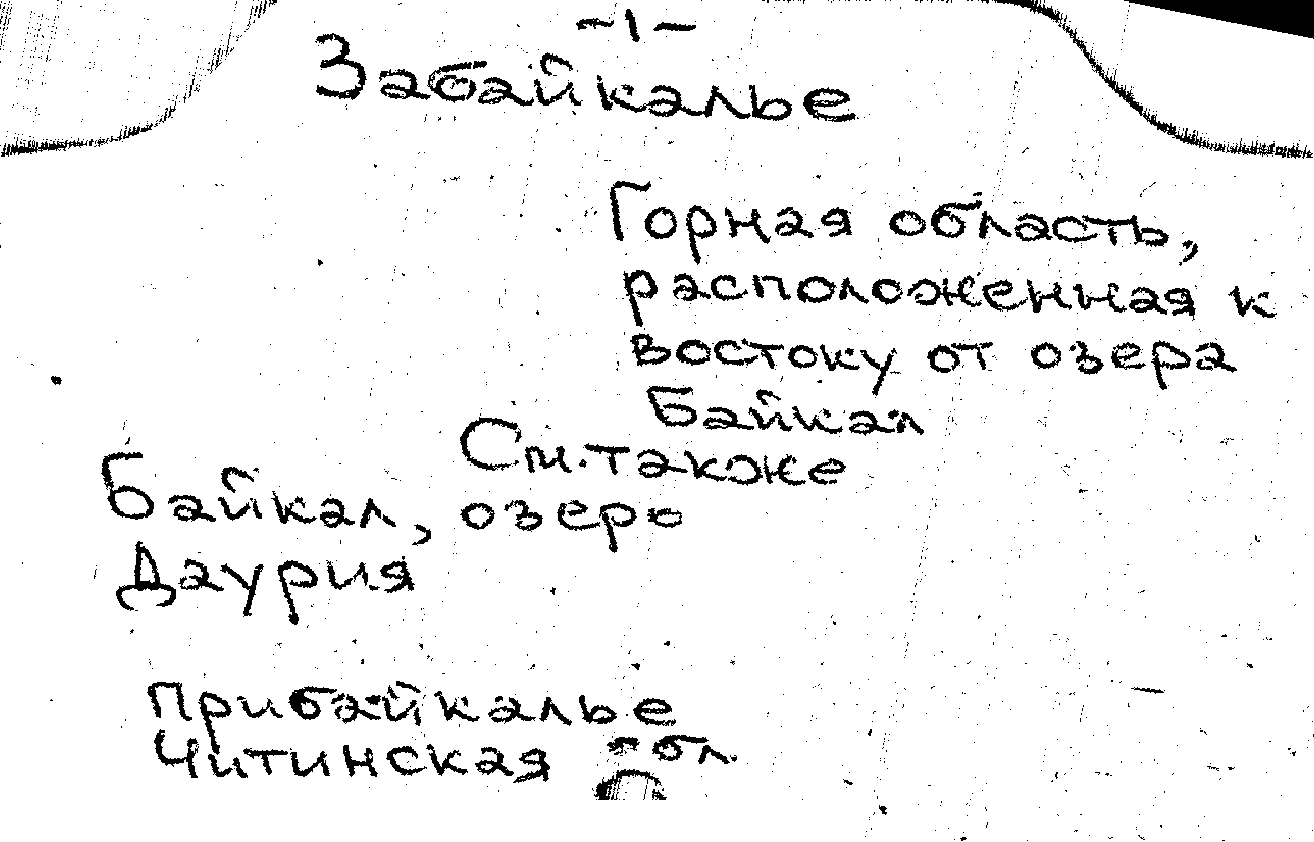 -1-
Забайкалье
Горная область,
расположенная к
востоку от озера
Байкал
См. также
Байкал, озеро
Даурия
Прибайкалье
Читинская обл.